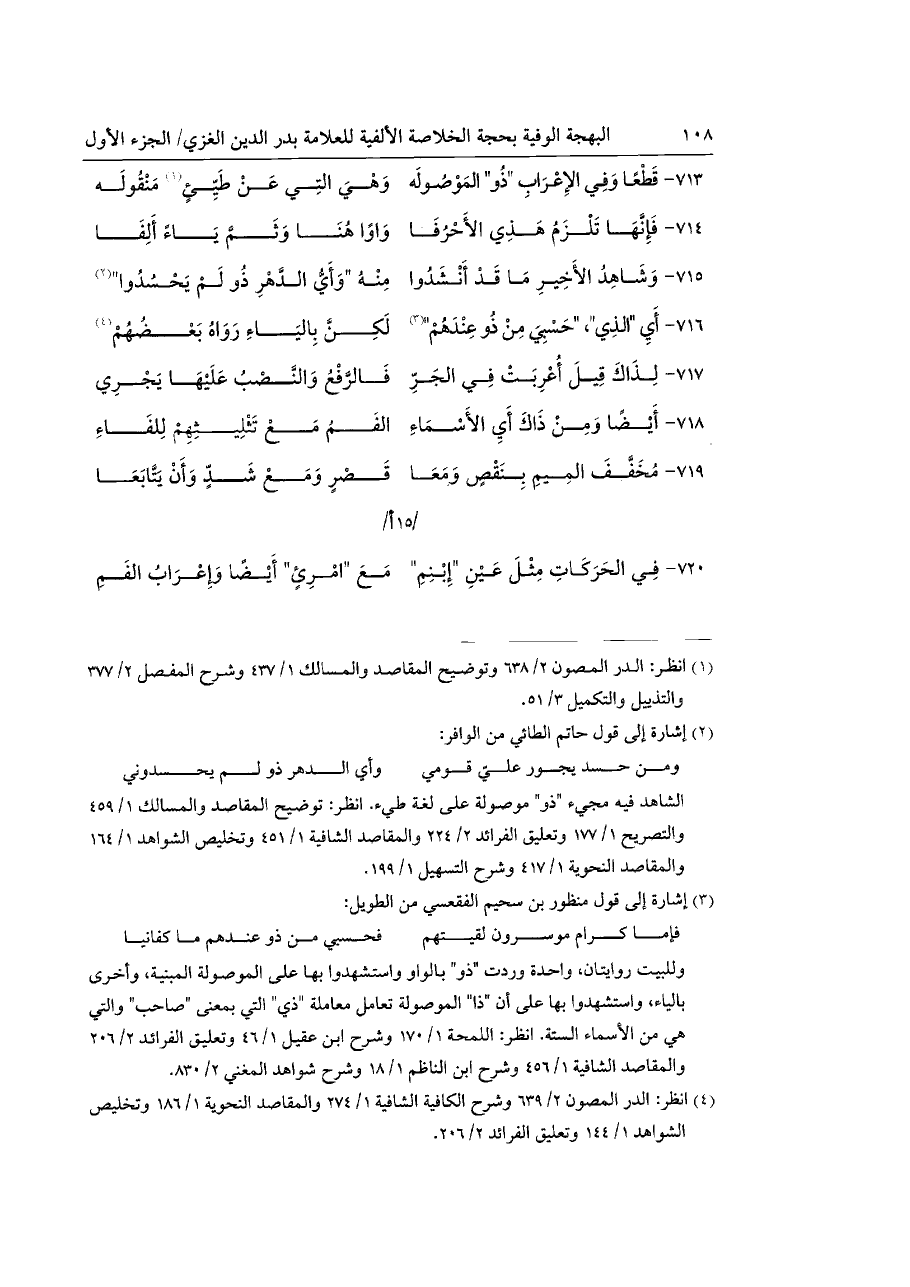 ١٠٨ البهجة الوفية بحجة الخلاصة الألفية للعلامة بدر الدين الغزي/ الجزء الأول
٧١٣- قَطْعًا وَفِي الإِعْرَابِ "ذُو" المَوْصُولَه وَهْيَ التِي عَنْ طَيِّئٍ(١) مَنْقُولَه
٧١٤- فَإِنَّهَا تَلْزَمُ هَذِي الأَحْرُفَا وَاوًا هُنَا وَثَمَّ يَاءً أَلِفَا
٧١٥- وَشَاهِدُ الأَخِيرِ مَا قَدْ أَنْشَدُوا مِنْهُ "وَأَيُّ الدَّهْرِ ذُو لَمْ يَحْسُدُوا"(٢)
٧١٦- أَيِ "الذِي"، "حَسْبِيَ مِنْ ذُو عِنْدَهُمْ"(٣) لَكِنَّ بِاليَاءِ رَوَاهُ بَعْضُهُمْ(٤)
٧١٧- لِذَاكَ قِيلَ أُعْرِبَتْ فِي الجَرِّ فَالرَّفْعُ وَالنَّصْبُ عَلَيْهَا يَجْرِي
٧١٨- أَيْضًا وَمِنْ ذَاكَ أَيِ الأَسْمَاءِ الفَمُ مَعْ تَثْلِيثِهِمْ لِلفَاءِ
٧١٩- مُخَفَّفَ المِيمِ بِنَقْصٍ وَمَعَا قَصْرٍ وَمَعْ شَدٍّ وَأَنْ يَتَّابَعَا
/١٥أ/
٧٢٠- فِي الحَرَكَاتِ مِثْلَ عَيْنِ "إِبْنِمِ" مَعَ "امْرِئٍ" أَيْضًا وَإِعْرَابُ الفَمِ
(١) انظر: الدر المصون ٢/ ٦٣٨ وتوضيح المقاصد والمسالك ١/ ٤٣٧ وشرح المفصل ٢/ ٣٧٧
والتذييل والتكميل ٣/ ٥١.
(٢) إشارة إلى قول حاتم الطائي من الوافر:
ومن حسد يجور عليّ قومي وأي الدهر ذو لم يحسدوني
الشاهد فيه مجيء "ذو" موصولة على لغة طيء. انظر: توضيح المقاصد والمسالك ١/ ٤٥٩
والتصريح ١/ ١٧٧ وتعليق الفرائد ٢/ ٢٢٤ والمقاصد الشافية ١/ ٤٥١ وتخليص الشواهد ١/ ١٦٤
والمقاصد النحوية ١/ ٤١٧ وشرح التسهيل ١/ ١٩٩.
(٣) إشارة إلى قول منظور بن سحيم الفقعسي من الطويل:
فإما كرام موسرون لقيتهم فحسبي من ذو عندهم ما كفانيا
وللبيت روايتان، واحدة وردت "ذو" بالواو واستشهدوا بها على الموصولة المبنية، وأخرى
بالياء، واستشهدوا بها على أن "ذا" الموصولة تعامل معاملة "ذي" التي بمعنى "صاحب" والتي
هي من الأسماء الستة. انظر: اللمحة ١/ ١٧٠ وشرح ابن عقيل ١/ ٤٦ وتعليق الفرائد ٢/ ٢٠٦
والمقاصد الشافية ١/ ٤٥٦ وشرح ابن الناظم ١/ ١٨ وشرح شواهد المغني ٢/ ٨٣٠.
(٤) انظر: الدر المصون ٢/ ٦٣٩ وشرح الكافية الشافية ١/ ٢٧٤ والمقاصد النحوية ١/ ١٨٦ وتخليص
الشواهد ١/ ١٤٤ وتعليق الفرائد ٢/ ٢٠٦.